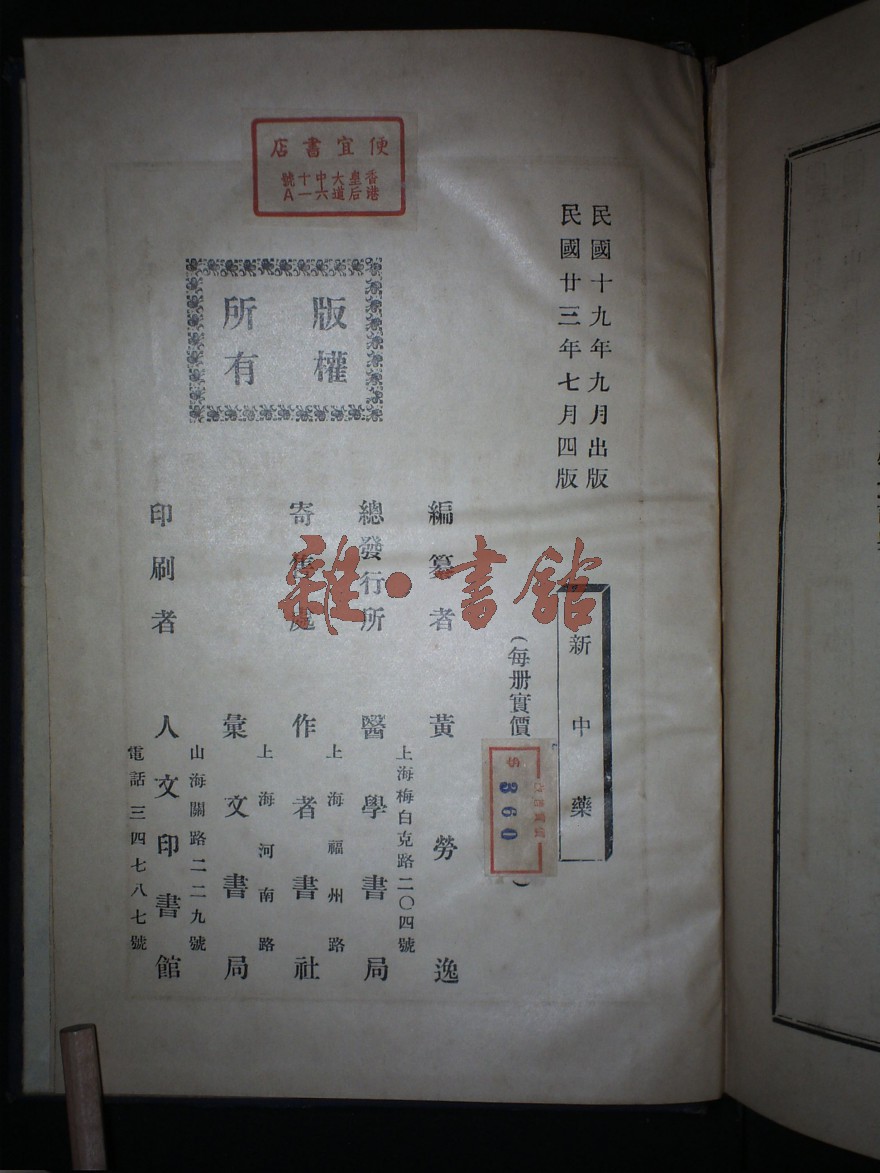 民國十九年九月出版
民國廿三年七月四版
新中藥
(每册實價
)
$ 360
編纂者 黃勞逸
總發行所 醫學書局
上海梅白克路二〇四號
寄售處 作者書社
上海福州路
彙文書局
上海河南路
印刷者 人文印書館
山海關路二二九號
電話三四七八七號
版權
所有
便宜書店
香港皇后大道中六十一號A
雜·書館